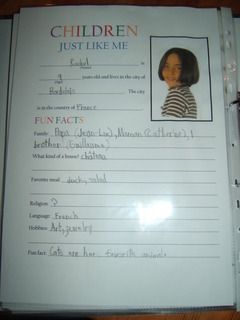 CHILDREN
JUST LIKE ME
Rachel is
9 years old and lives in the city of
The city
is in the country of France
FUN FACTS
Family: Papa (Jean-Luc), Maman (Catherine), 1
brother (Guillaume)
What kind of a house? château
Favorite meal: duck, salad
Religion: ?
Language: French
Hobbies: Art, jewelry
Fun fact: Cats are her favorite animals